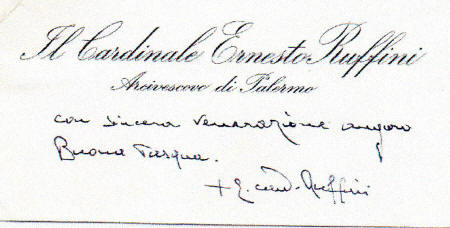 Il Cardinale Ernesto Ruffini
Arcivescovo di Palermo
con sincera venerazione auguro
Buona Pasqua.
+ E. card. Ruffini